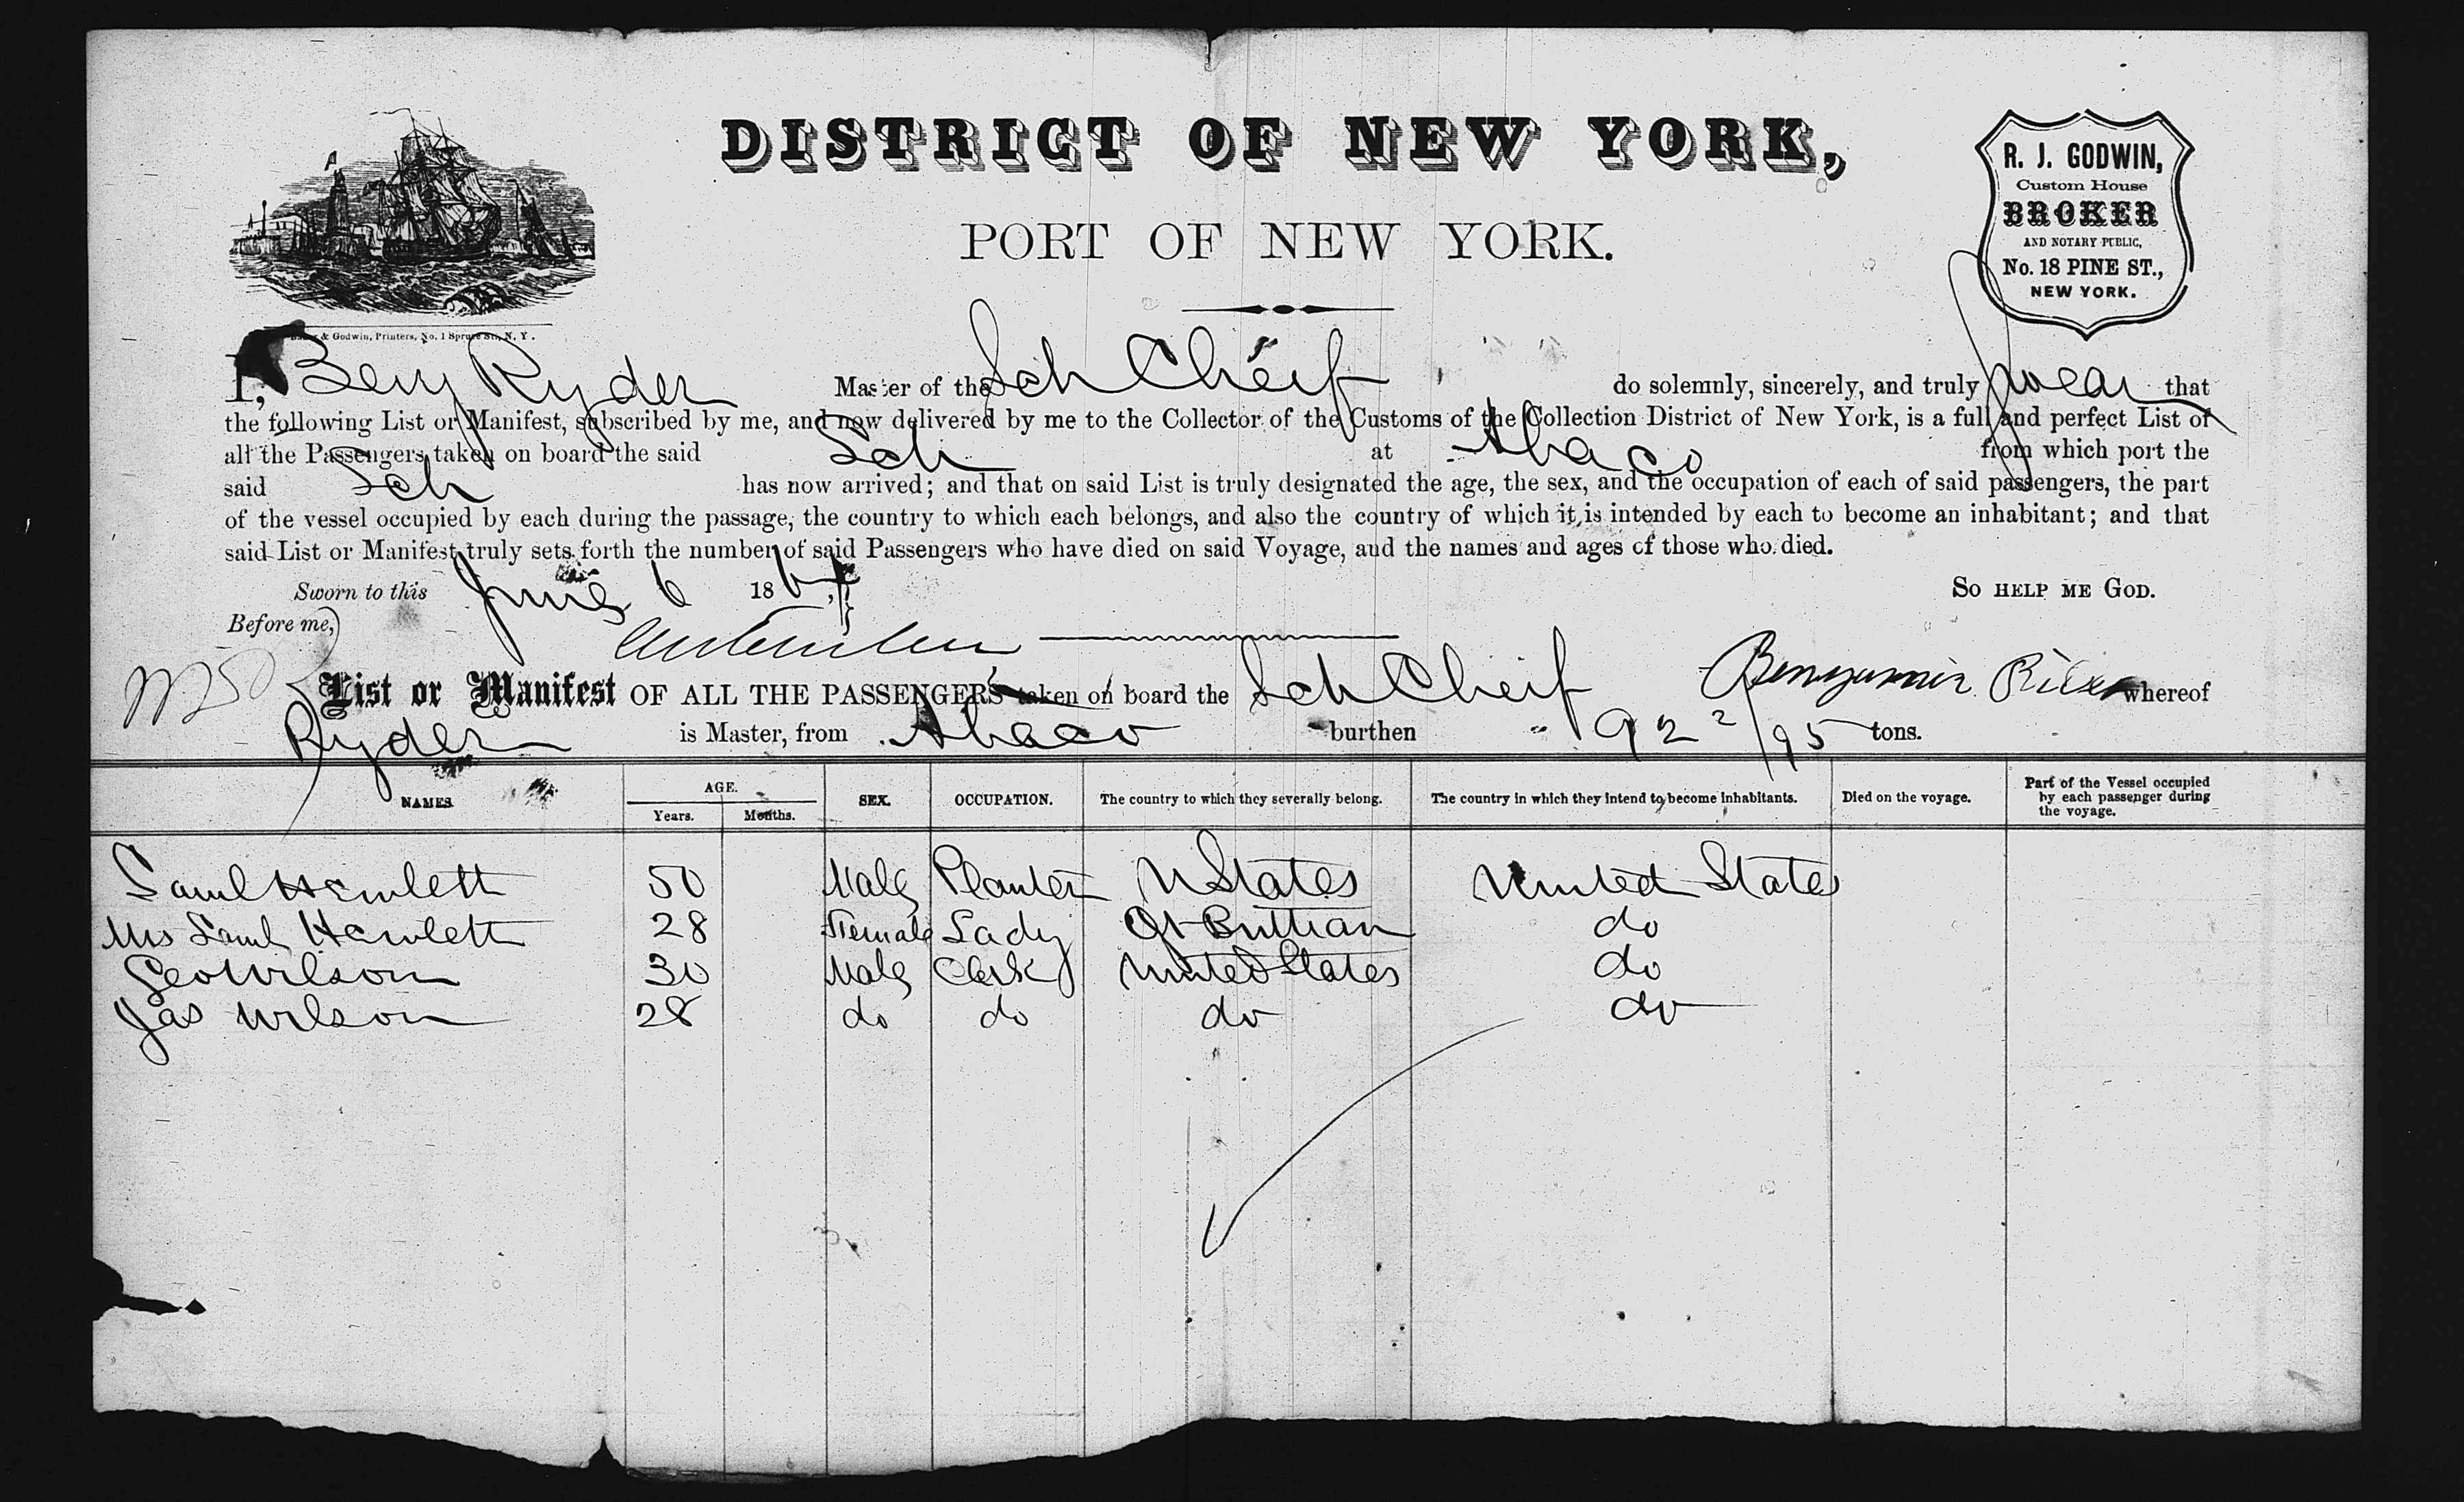 DISTRICT OF NEW YORK,
PORT OF NEW YORK.
R. J. GODWIN,
Custom House
BROKER
AND NOTARY PUBLIC,
No. 18 PINE ST.,
NEW YORK.
& Godwin, Printers, No. 1 Spruce St., N. Y.
I, Benj Ryder Master of the Sch Cheif do solemnly, sincerely, and truly swear that
the following List or Manifest, subscribed by me, and now delivered by me to the Collector of the Customs of the Collection District of New York, is a full and perfect List of
all the Passengers taken on board the said Sch at Abaco from which port the
said Sch has now arrived; and that on said List is truly designated the age, the sex, and the occupation of each of said passengers, the part
of the vessel occupied by each during the passage, the country to which each belongs, and also the country of which it is intended by each to become an inhabitant; and that
said List or Manifest truly sets forth the number of said Passengers who have died on said Voyage, and the names and ages of those who died.
Sworn to this June 6 186 SO HELP ME GOD.
Before me,
List or Manifest OF ALL THE PASSENGERS taken on board the Sch Cheif Benjamin whereof
Ryder is Master, from Abaco burthen 92 2/95 tons.
NAMES AGE. Years. Months. SEX. OCCUPATION. The country to which they severally belong. The country in which they intend to become inhabitants. Died on the voyage. Part of the Vessel occupied by each passenger during the voyage.
Saml Hewlett 50 Male Planter U States United States
Mrs Saml Hewlett 28 Female Lady Gt Brittian do
Geo Wilson 30 Male Clerk United States do
Jas Wilson 28 do do do do